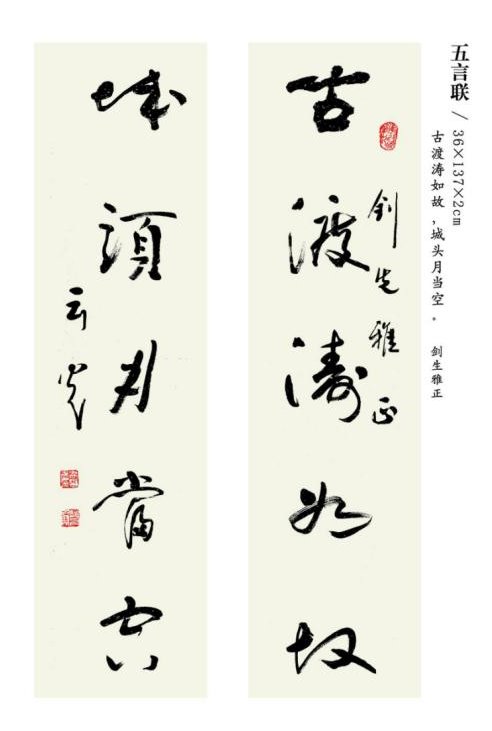 五言联 / 36×137×2cm
古渡涛如故，城头月当空。 剑生雅正
古渡濤如故
雅正
城頭月當空
云